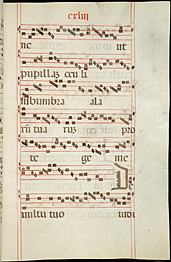 cxliii
ne ut
pupillaʒ oculi
sub umbra ala
rū tua rus pro
te ge me
D
vultu tuo iudi